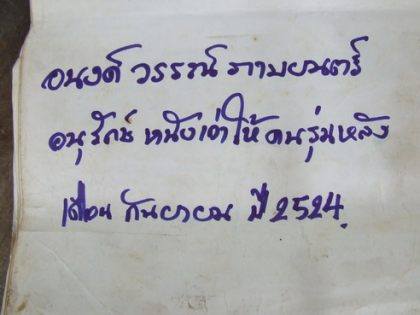 อนงค์ วรรณ์ ภาพยนตร์
อนุรักษ์ หนังเก่าให้ คนรุ่นหลัง
เดือน กันยายน ปี 2524.